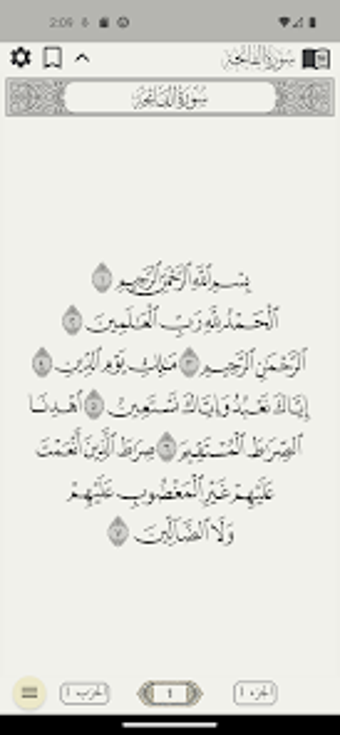 2:09
سُورَةُ الفَاتِحَةِ
سُورَةُ الفَاتِحَةِ
بِسۡمِ ٱللَّهِ ٱلرَّحۡمَٰنِ ٱلرَّحِيمِ ١
ٱلۡحَمۡدُ لِلَّهِ رَبِّ ٱلۡعَٰلَمِينَ ٢
ٱلرَّحۡمَٰنِ ٱلرَّحِيمِ ٣ مَٰلِكِ يَوۡمِ ٱلدِّينِ ٤
إِيَّاكَ نَعۡبُدُ وَإِيَّاكَ نَسۡتَعِينُ ٥ ٱهۡدِنَا
ٱلصِّرَٰطَ ٱلۡمُسۡتَقِيمَ ٦ صِرَٰطَ ٱلَّذِينَ أَنۡعَمۡتَ
عَلَيۡهِمۡ غَيۡرِ ٱلۡمَغۡضُوبِ عَلَيۡهِمۡ
وَلَا ٱلضَّآلِّينَ ٧
الجزء ١
١
الحزب ١